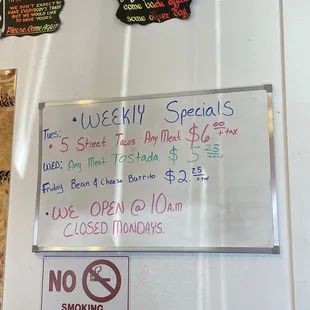 WE DON'T EXPECT TO
HAVE EVERYBODY'S TRADE
BUT WE WOULD LIKE
TO HAVE YOURS.
Please Come Again!
come back
some other day
• WEEKLY Specials
Tues:
• 5 Street Tacos Any Meat $6.00 + tax
WED: Any Meat TOSTADA $5.25 + tax
Friday Bean & Cheese Burrito $2.25 + tax
• WE OPEN @ 10 A.M
CLOSED MONDAYS.
NO
SMOKING